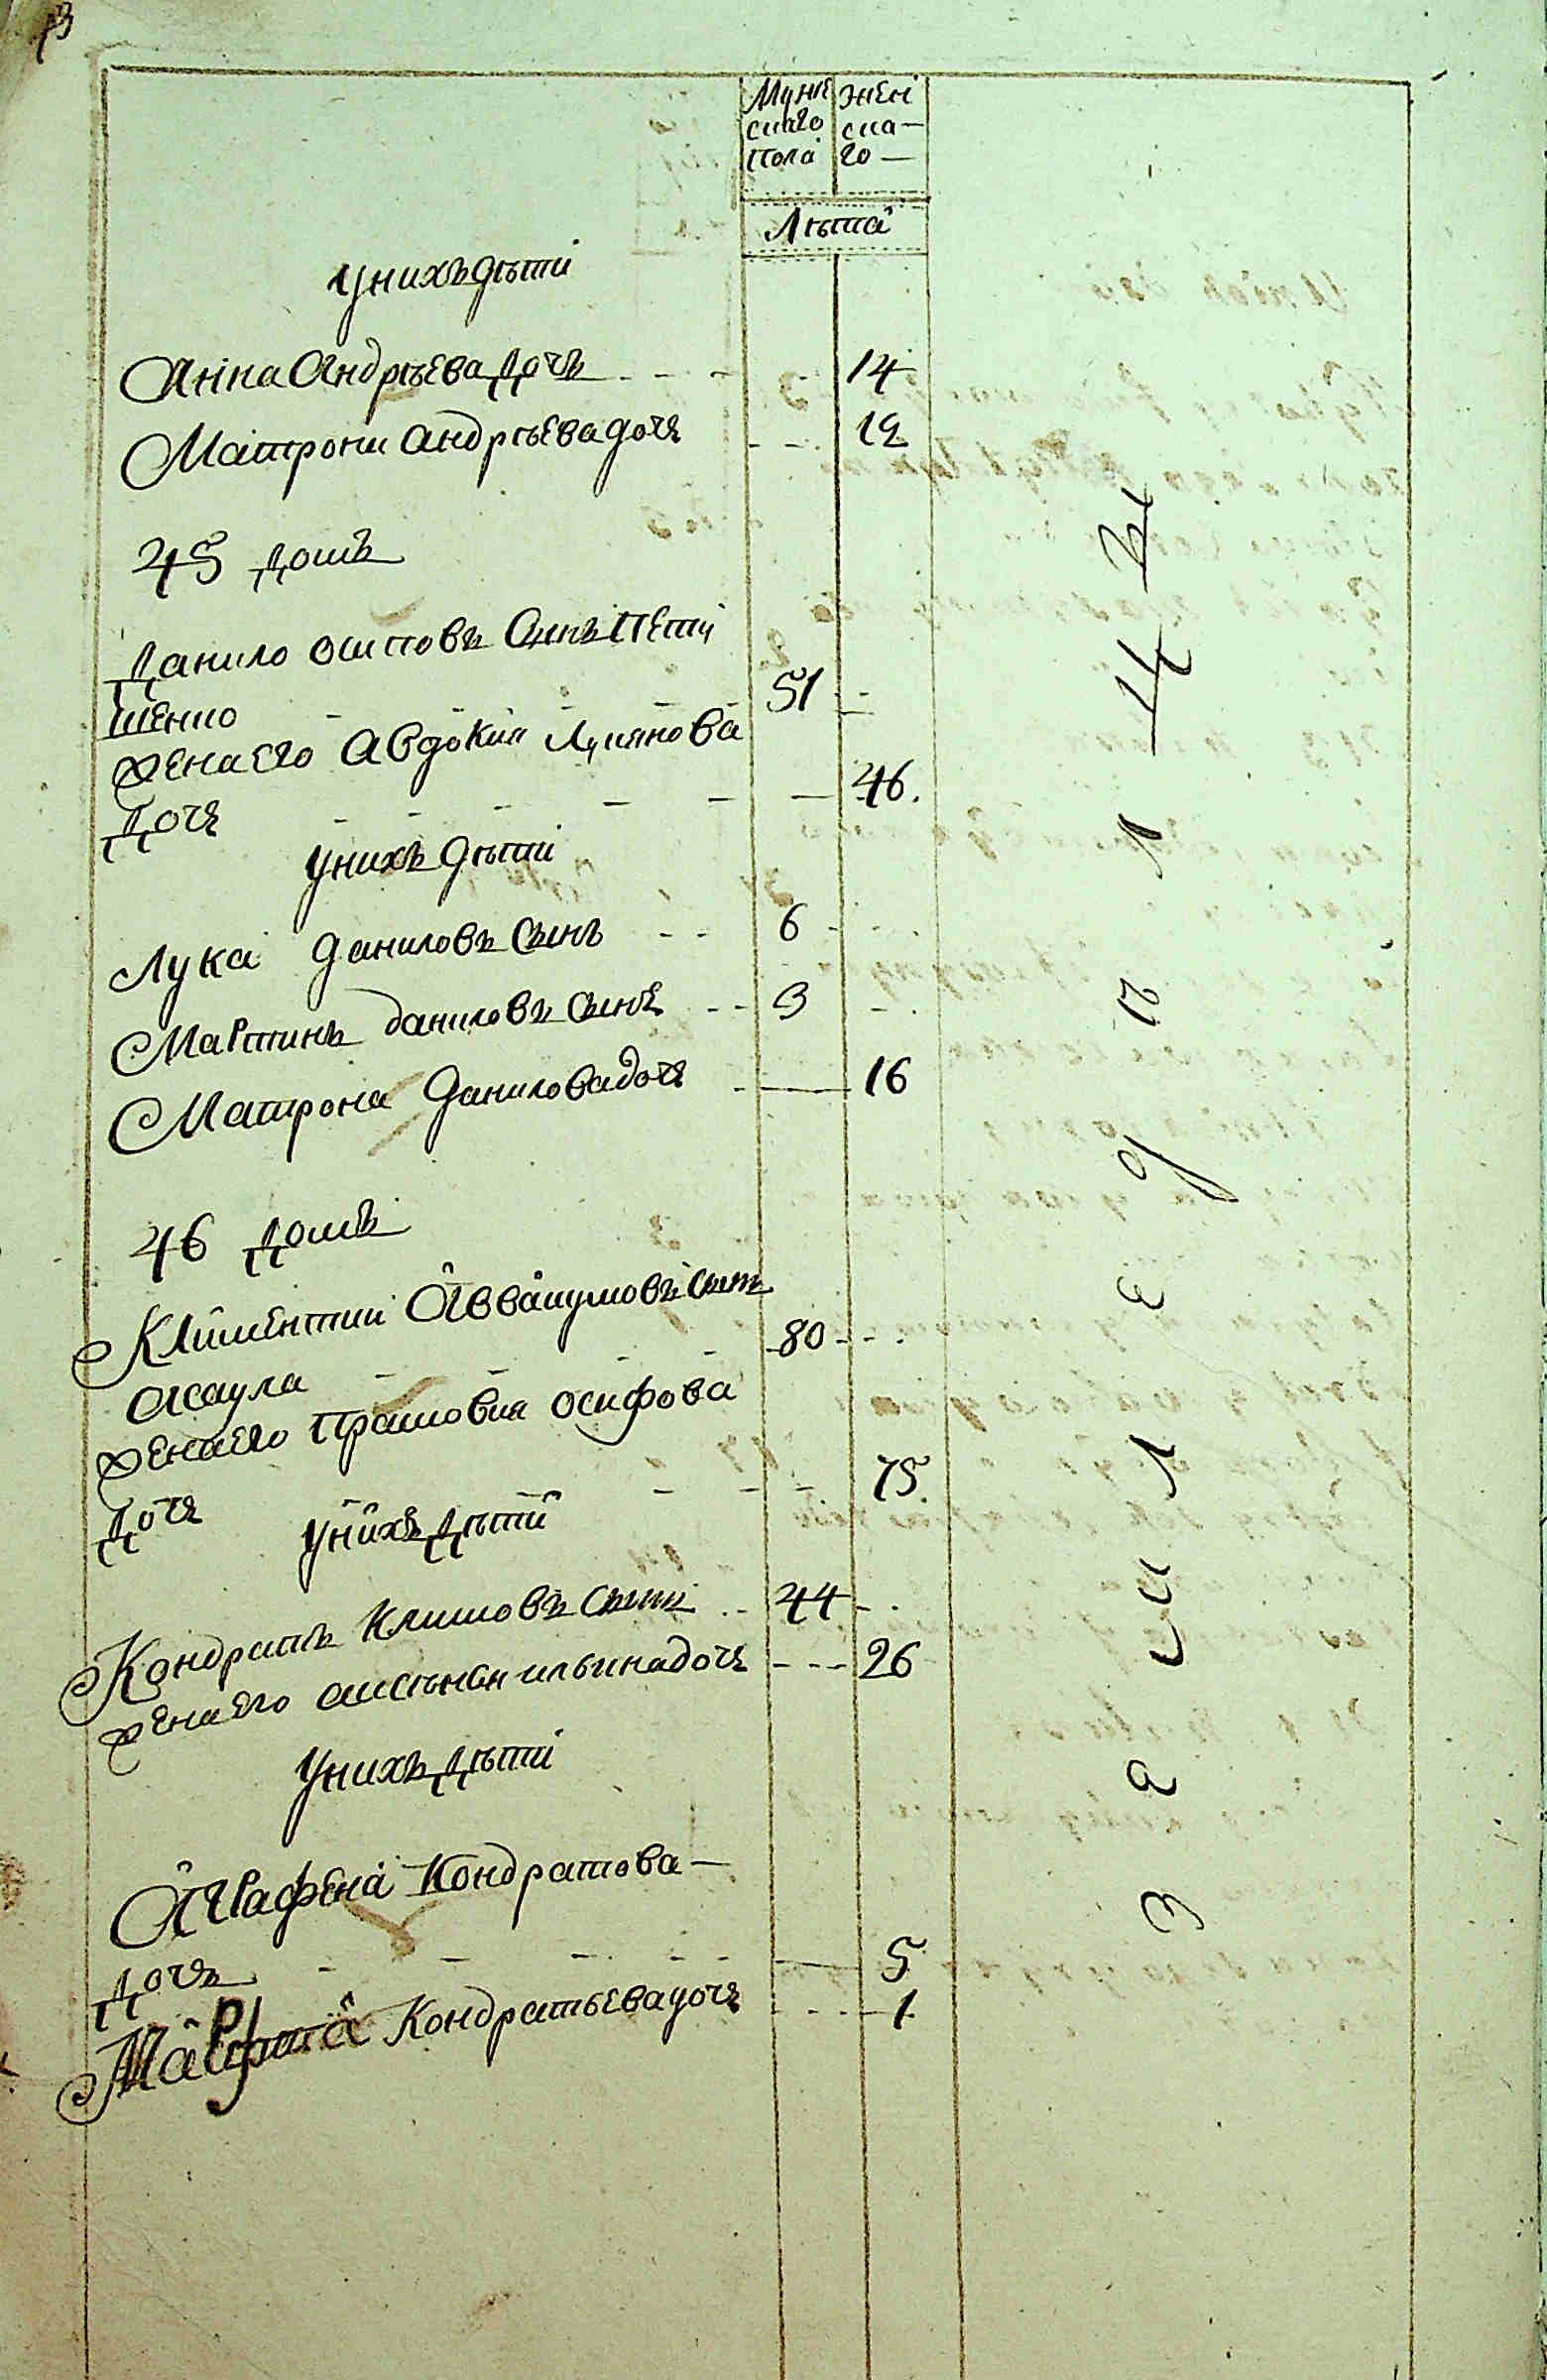 Муже жені
скаго ска—
пола го —
Лѣта
у нихъ дѣти
Анна Андрѣева дочь - - - - 14
Матрони Андрѣева дочь - - 12
45 домъ
Данило Осиповъ Сынъ Пету
шенко - - 51 -
жена его Авдокия Лукянова
дочь - - - - - - 46.
у нихъ дѣти
Лука Даниловъ Сынъ - - 6 - - .
Мартинъ Даниловъ Сынъ - - 3 - .
Матрона Данилова дочь - — 16
46 домъ
Климентий Аввакумовъ Сынъ
Асаула - - - - 80 - - .
жена его Прасковия Осифова
дочь - - - 75
у нихъ дѣти
Кондратъ Климовъ Сынъ - - 44 - .
жена его Ильина дочь - - - 26
у нихъ дѣти
Аграфена Кондратова —
дочь - - - - - — 5
Марфа Кондратьева дочь - - - 1